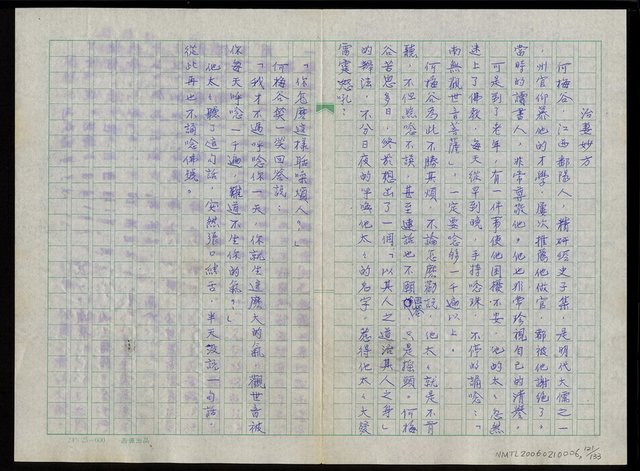 治妻妙方
何梅谷,江西鄱陽人,精研經史子集,是明代大儒之一
,州官仰慕他的才學,屢次推薦他做官,都被他謝絕了。
當時的讀書人,非常尊敬他,他也非常珍視自己的清譽。
可是到了老年,有一件事使他困擾不安,他的太太忽然
迷上了佛教,每天從早到晚,手持唸珠,不停的誦唸:「
南無觀世音菩薩」,一定要唸够一千遍以上。
何梅谷為此不勝其煩,不論怎麼勸說,他太太就是不肯
聽,不但照唸不誤,甚至連話也不願回答,只是搖頭。何梅
谷苦思多日,終於想出了一個「以其人之道治其人之身」
的辦法,不分日夜的呼喚他太太的名字,惹得他太太大發
雷霆怒吼:
「你怎麼這樣聒噪煩人?」
何梅谷哭一笑回答說:
「我才不過呼唸你一天,你就生這麼大的氣,觀世音被
你每天呼唸一千遍,難道不生你的氣?」
他太太聽了這句話,突然張口結舌,半天沒說一句話,
從此再也不誦唸佛號。
NMTL20060210006, 121/133